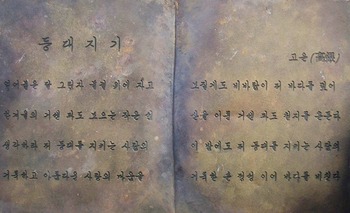 등대지기
얼어붙은 달 그림자 물결 위에 자고
한겨울의 거센 파도 모으는 작은 섬
생각하라 저 등대를 지키는 사람의
거룩하고 아름다운 사랑의 마음을
고은(高銀)
모질게도 비바람이 저 바다를 덮어
산을 이룬 거센 파도 천지를 흔든다
이 밤에도 저 등대를 지키는 사람의
거룩한 손 정성 이어 바다를 비춘다